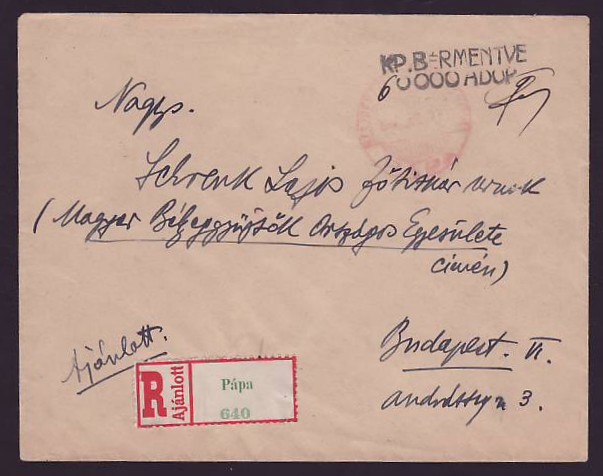 KP. BÉRMENTVE
6 0000 ADÓP
Nagys.
Schrenk Lajos főtitkár urnak
(Magyar Bélyeggyűjtők Országos Egyesülete
címén)
Ajánlott.
Budapest. VI.
Andrássy u 3.
R Ajánlott
Pápa
640